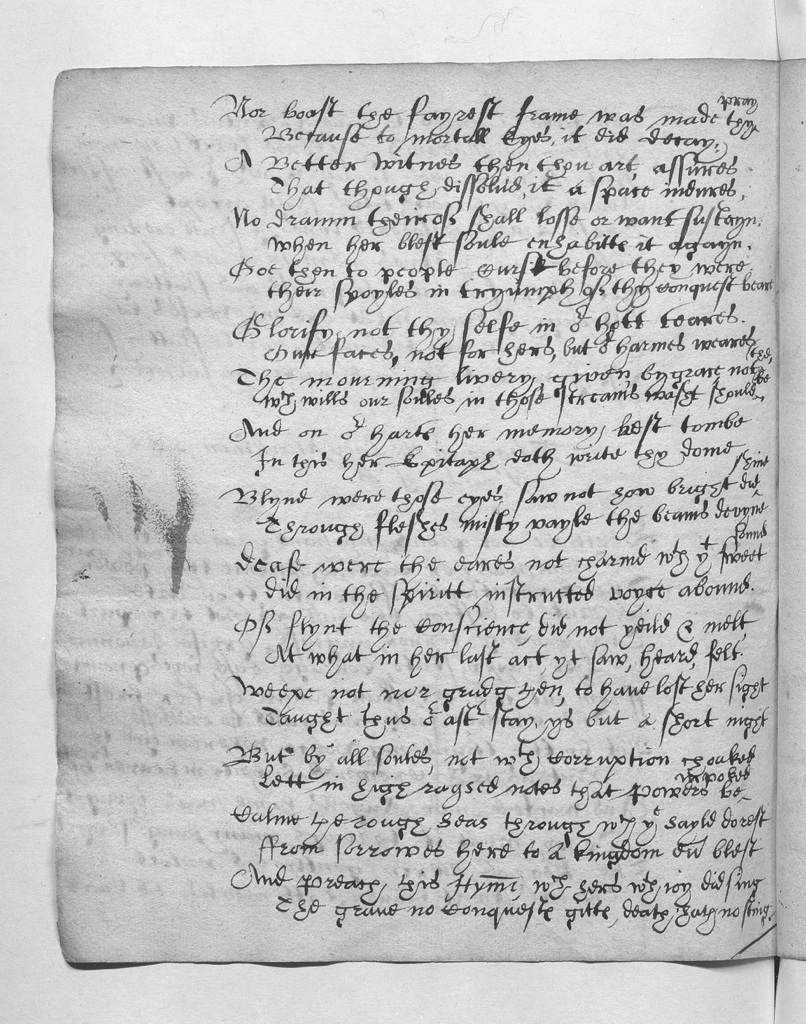 Nor boast the fayrest frame was made thy pray
Because to mortall Eyes, it did decay;
A Better witnes then thou art, assures
That though, dissolud, it a space indures,
No dramm theirof shall losse or want sustayn,
when her blest soule enhabitts it agayn.
Goe then to people Curst before they were
their spoyles in tryiumph of thy Conquest beare
Glorify not thy selfe in or hott teares.
Our faces, not for hers, but or harmes weares
The mourning livery given by grace not thee
wch wills our soules in those streams washt should be
And on or harts her memory, best tombe
In this her Epitaph doth write thy dome
Blynd were those eyes saw not how bright did shine
Through fleshes misty vayle the beams devyne
deafe were the eares not charmd wth yt sweet sound
did in the spiritt instructed voyce abound.
Of flynt the Conscience, did not yeild & melt
At what in her last act yt saw, heard, felt.
Weepe not nor grudg then, to have lost her sight
Taught thus or aftr stay, ys but a short night
But by all soules, not wth Corruption choaked
Lett in high raysed notes that powers be invoked
Calme the rough seas through wch ye sayld to rest
ffrom sorrowes here to a kingdom evr blest
And preach, this Hymn, wth hers wth ioy did sing
The grave no Conquest gitts, death hath no sting